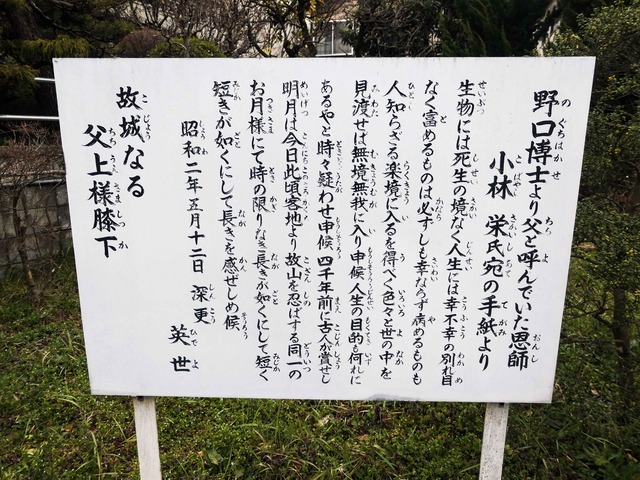 野口博士より父と呼んでいた恩師
小林 栄氏宛の手紙より
生物には死生の境なく人生には幸不幸の別れ目
なく富めるものは必ずしも幸ならず病めるものも
人知らざる楽境に入るを得べく色々と世の中を
見渡せば無境無我に入り申候 人生の目的も何れに
あるやと時々疑わせ申候 四千年前に古人が賞せし
明月は今日此頃客地より故山を忍ばする同一の
お月様にて時の限りなき長きが如くにして短く
短きが如くにして長きを感ぜしめ候
昭和二年五月十二日 深更
英世
故城なる
父上様膝下